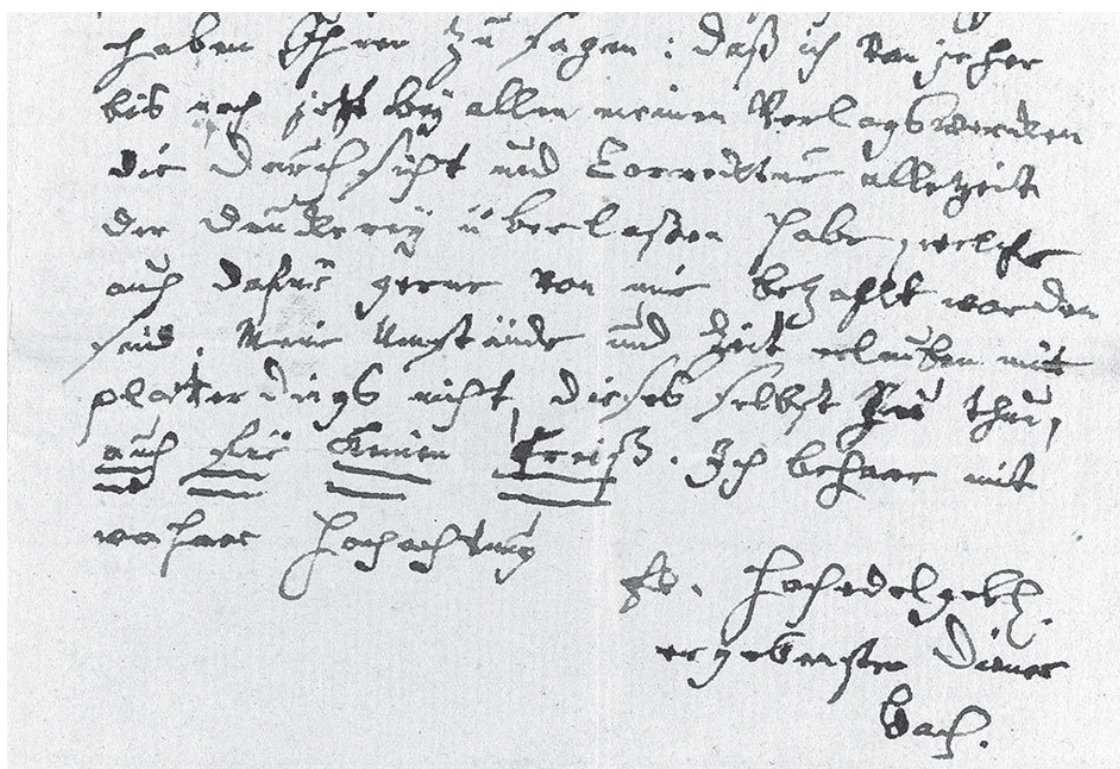 haben Ihnen zu sagen: daß ich von jeher
bis noch jetzt bey allen meinen Verlagswercken
die Durchsicht und Correcktur allezeit
der Druckerey überlaßen habe, welche
auch dafür gerne von mir bezahlt worden
sind. Meine Umstände und Zeit erlauben mir
platterdings nicht, dieses selbst zu thun,
auch für keinen Preiß. Ich beharre mit
wahrer Hochachtung
Ew. Hochedelgebh.
ergebenster Diener
Bach.